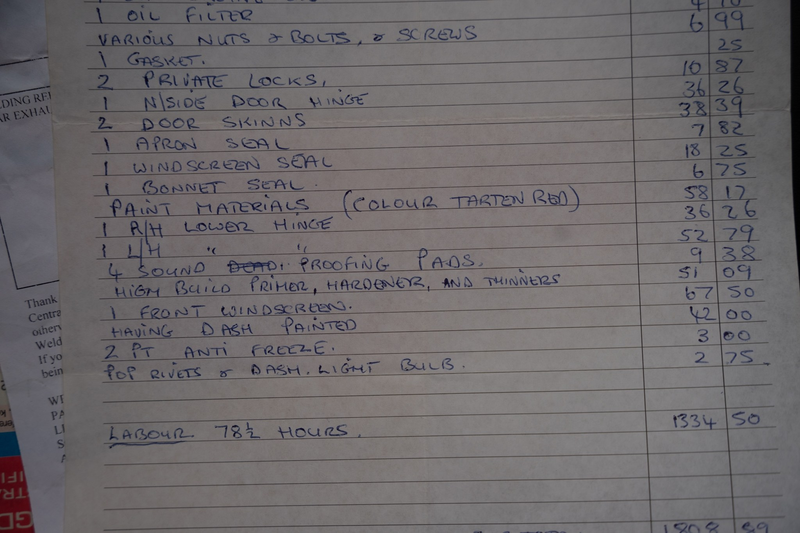 1 OIL FILTER
VARIOUS NUTS & BOLTS, & SCREWS 6 99
1 GASKET. 25
2 PRIVATE LOCKS, 10 87
1 N/SIDE DOOR HINGE 36 26
2 DOOR SKINNS 38 39
1 APRON SEAL 7 82
1 WINDSCREEN SEAL 18 25
1 BONNET SEAL. 6 75
PAINT MATERIALS (COLOUR TARTEN RED) 58 17
1 R/H LOWER HINGE 36 26
1 L/H " " 52 79
4 SOUND PROOFING PADS. 9 38
HIGH BUILD PRIMER, HARDENER, AND THINNERS 51 09
1 FRONT WINDSCREEN. 67 50
HAVING DASH PAINTED 42 00
2 PT ANTI FREEZE. 3 00
POP RIVETS & DASH. LIGHT BULB. 2 75
LABOUR 78½ HOURS. 1334 50
AR EXHAU
Thank
Centra
otherw
Weld
If yo
bein